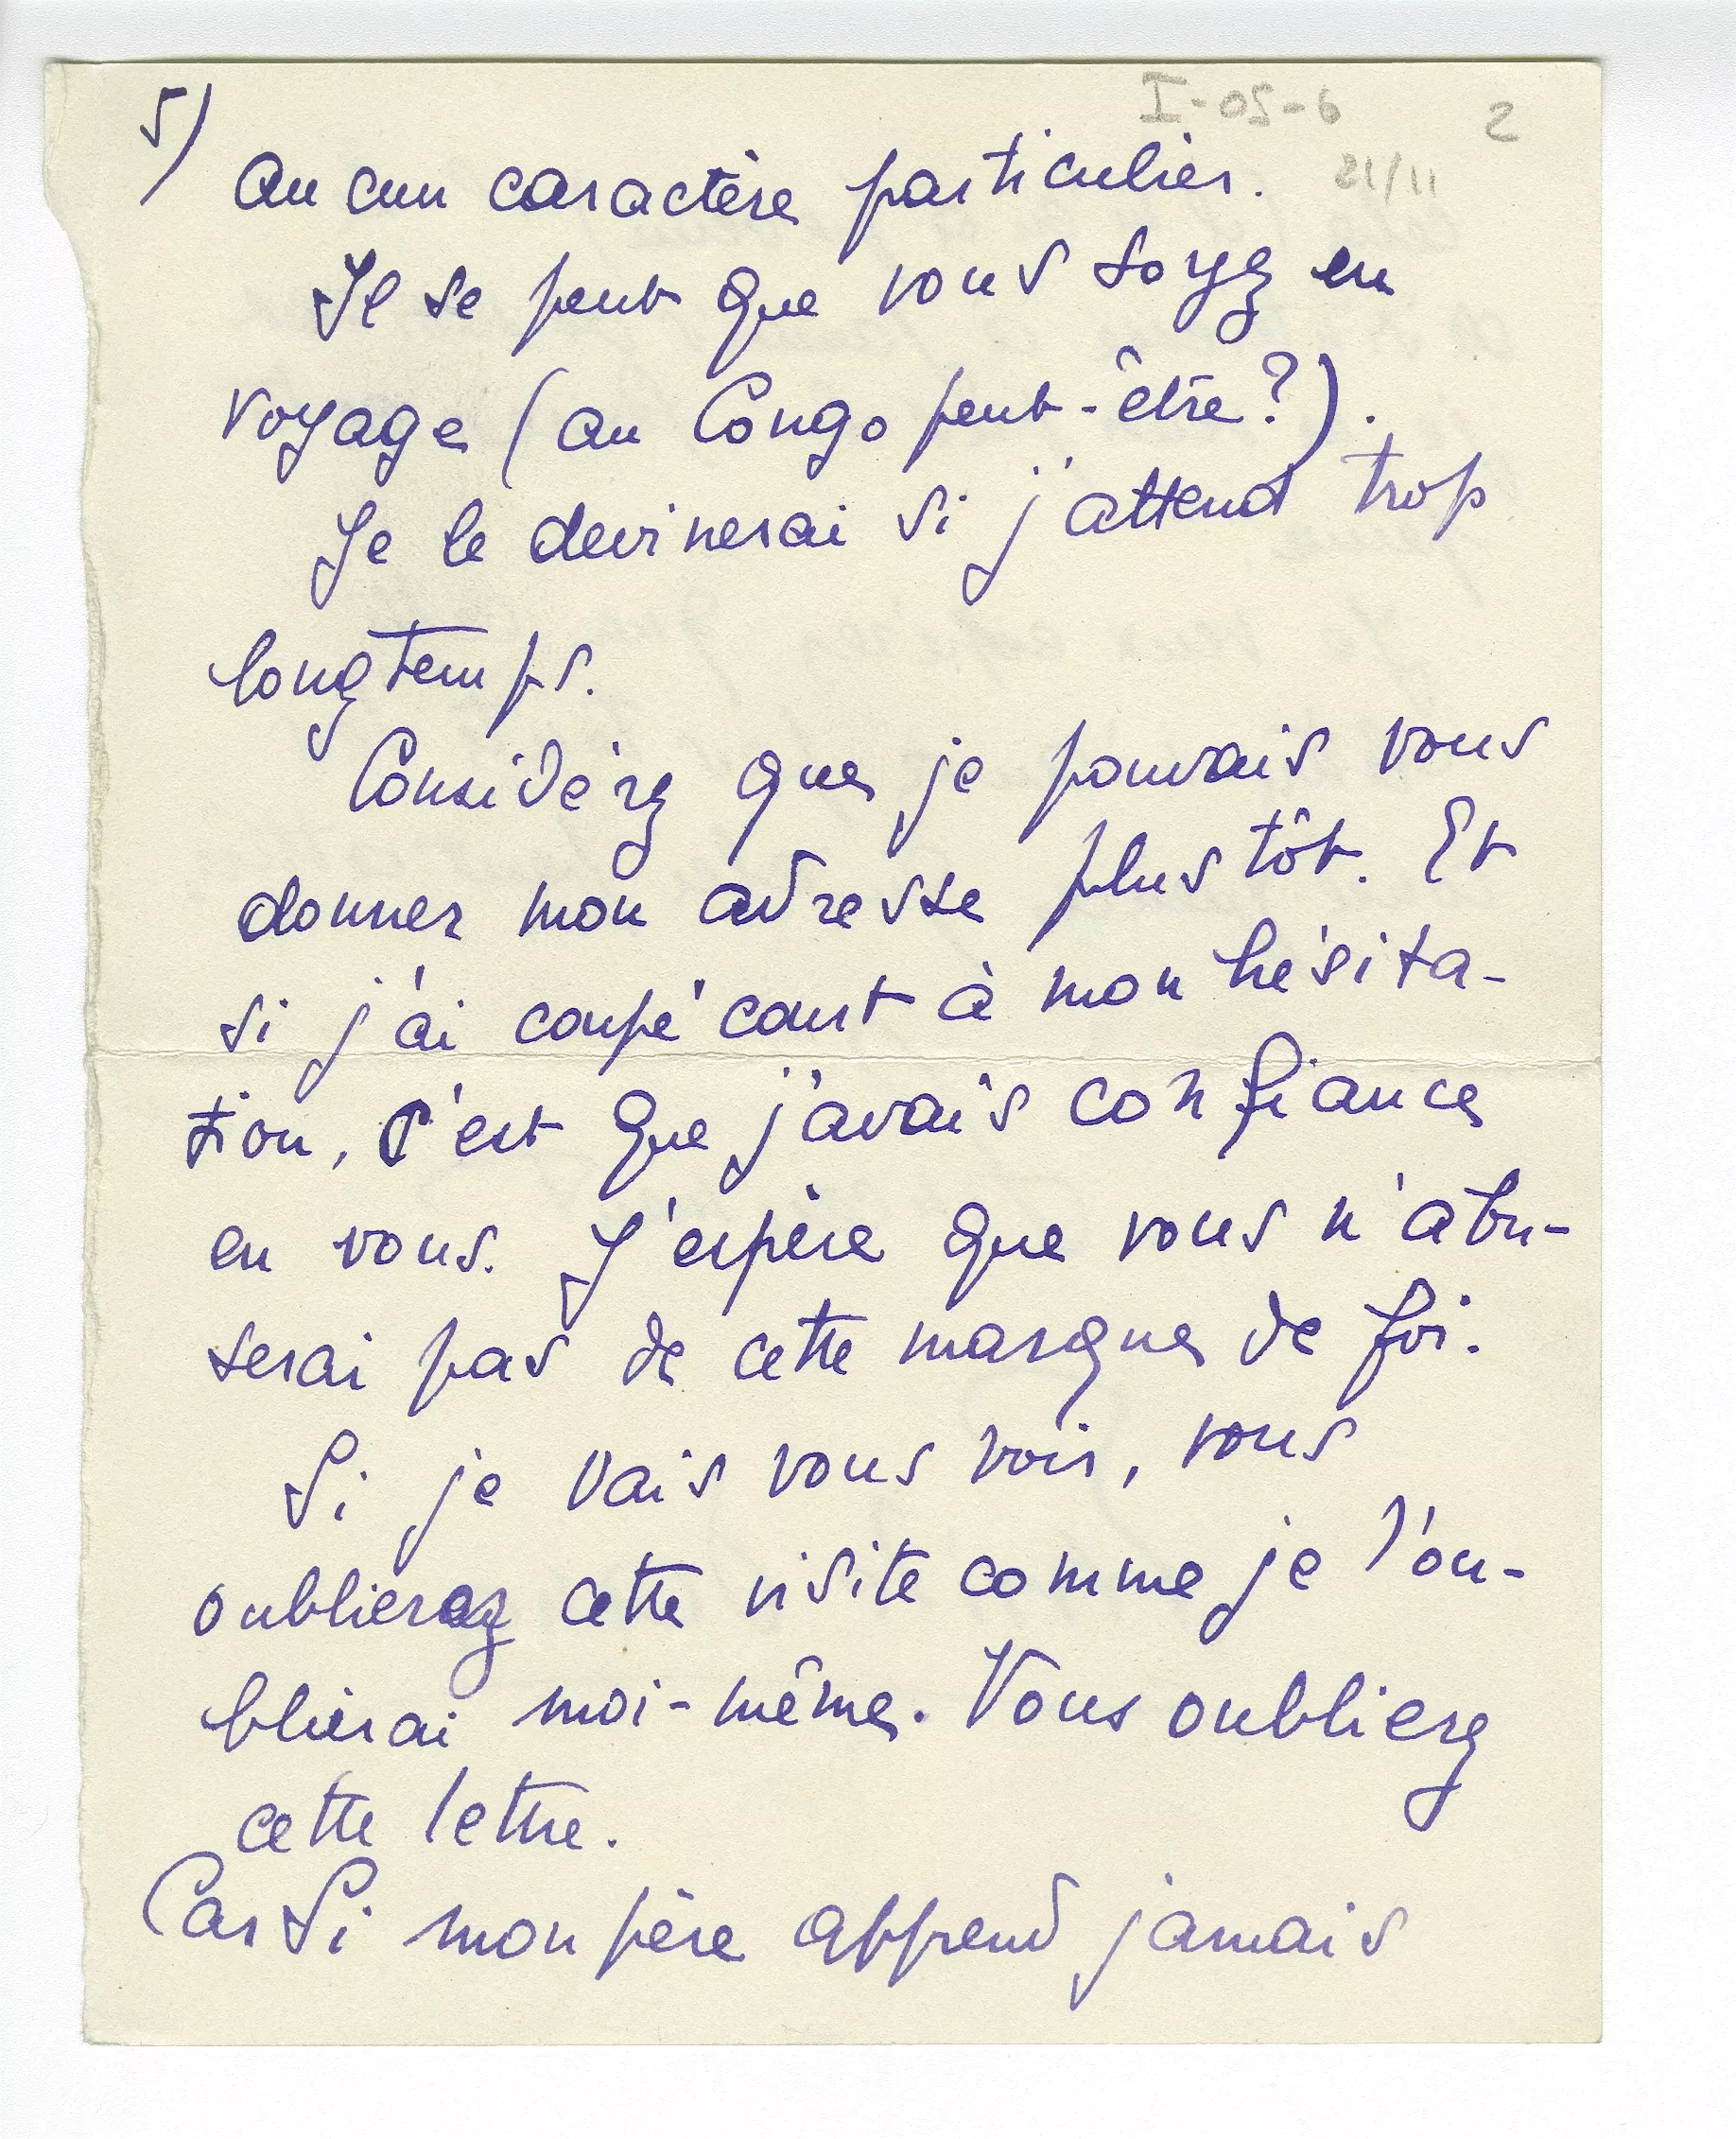 I-05-6 2
5)
21/11
aucun caractère particulier.
Il se peut que vous soyez en
voyage (au Congo peut-être?).
Je le devinerai si j'attend trop
longtemps.
Considérez que je pouvais vous
donner mon adresse plus tôt. Et
si j'ai coupé court à mon hésita-
tion, c'est que j'avais confiance
en vous. J'espère que vous n'abu-
serai pas de cette marque de foi.
Si je vais vous voir, vous
oublierez cette visite comme je l'ou-
blierai moi-même. Vous oublierz
cette lettre.
Car si mon père apprend jamais